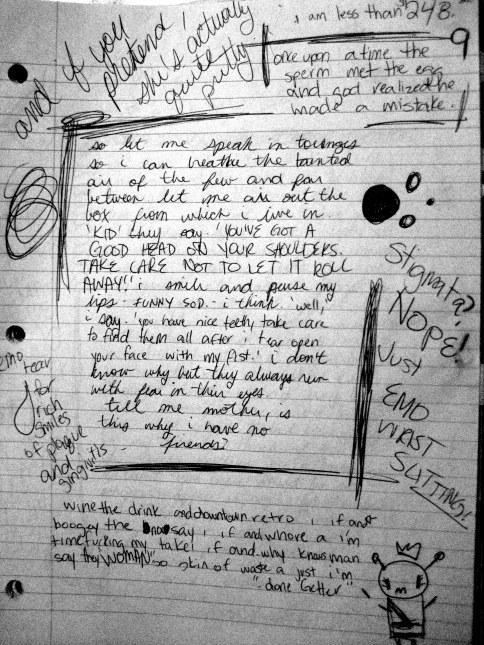 and if you
pretend,
she's actually
quite
pretty
i am less than 248.
once upon a time the
sperm met the egg
and god realized he
made a mistake.
so let me speak in tounges
so i can breathe the tainted
air of the few and far
between. let me air out the
box from which i live in.
'KID' they say. 'YOU'VE GOT A
GOOD HEAD ON YOUR SHOULDERS.
TAKE CARE NOT TO LET IT ROLL
AWAY!' i smile and purse my
lips. FUNNY SOD. i think. 'well,'
i say. 'you have nice teeth, take care
to find them all after i tear open
your face with my fist.' i don't
know why but they always run
with fear in their eyes.
tell me mother, is
this why i have no
friends?
Stigmata?
NOPE!
Just
EMO
WRIST
SLITTING!
emo tear
for
rich
smiles
of plaque
and
gingivitis
wine the drink and downtown retro, if and
boogey the say, if and whore a i'm
time fucking my take, if and why knows man
say they WOMAN" so skin of waste a just i'm